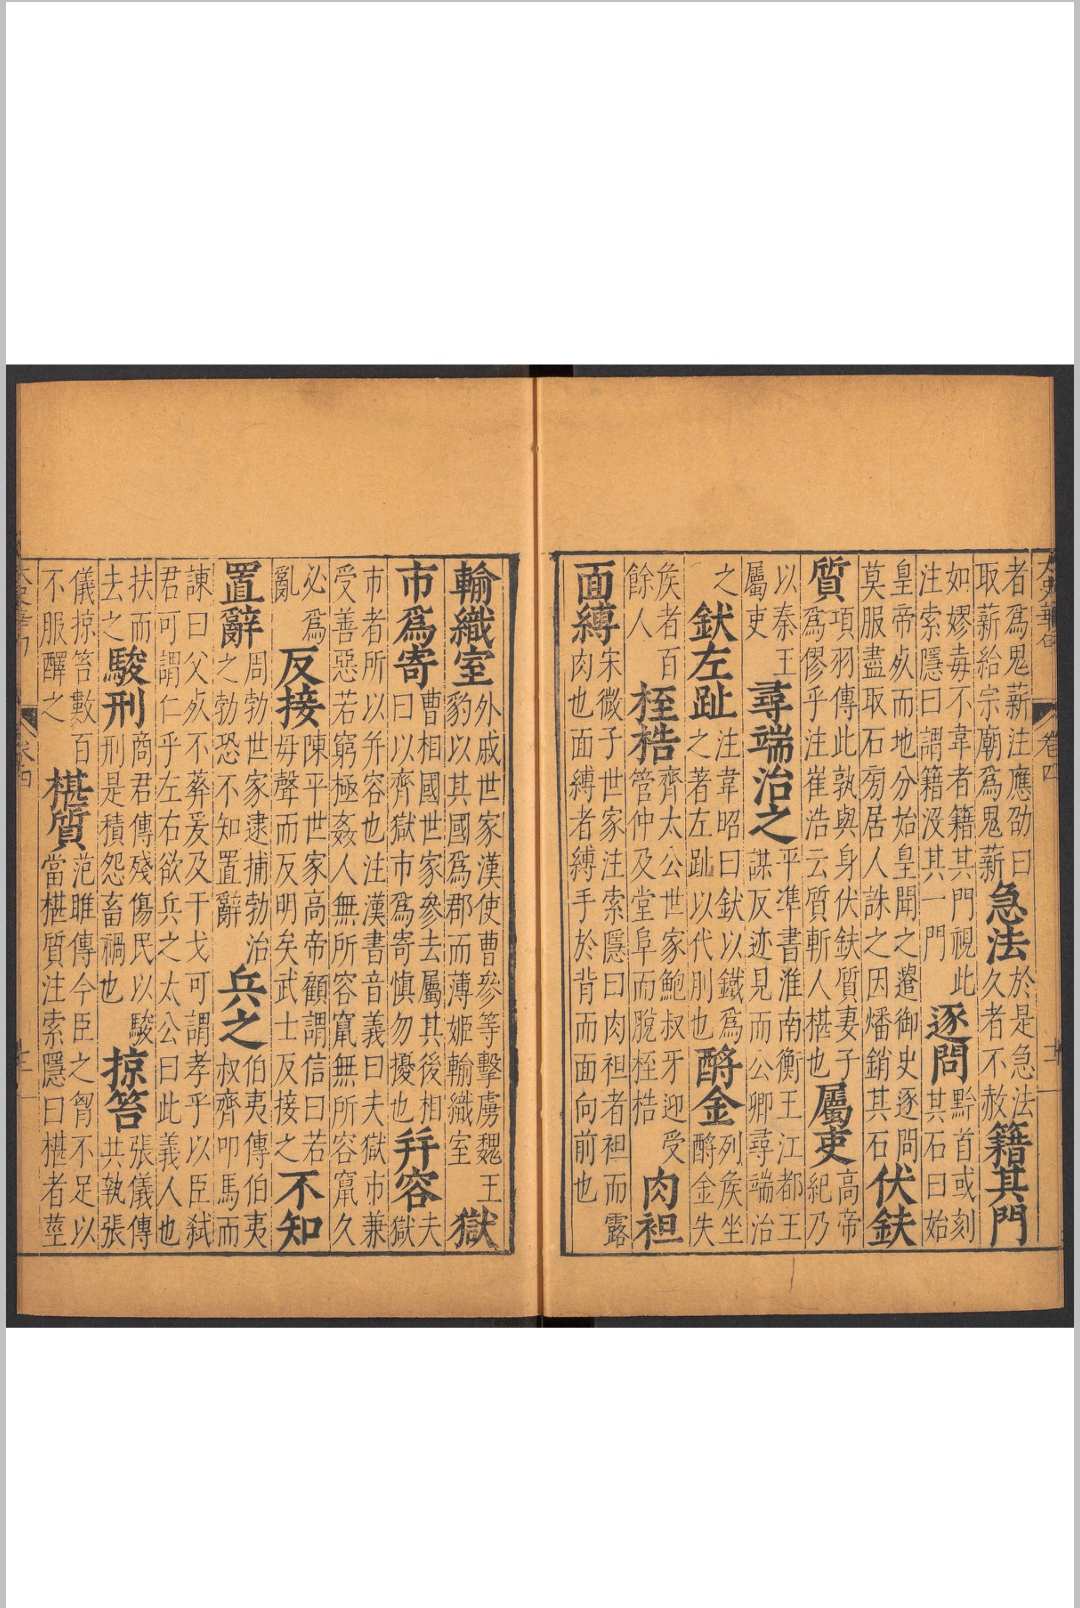 太史華句 卷四 十一
者爲鬼薪注應劭曰
取薪給宗廟爲鬼薪
急法
於是急法
久者不赦
籍其門
如嫪毐不韋者籍其門視此
注索隱曰謂籍沒其一門
逐問
黔首或刻
其石曰始
皇帝死而地分始皇聞之遣御史逐問
莫服盡取石旁居人誅之因燔銷其石
伏鈇
質
項羽傳此孰與身伏鈇質妻子
爲僇乎注崔浩云質斬人椹也
屬吏
高帝
紀乃
以秦王
屬吏
尋端治之
平準書淮南衡王江都王
謀反迹見而公卿尋端治
之
釱左趾
注韋昭曰釱以鐵爲
之著左趾以代刖也
酎金
列侯坐
酎金失
侯者百
餘人
桎梏
齊太公世家鮑叔牙迎受
管仲及堂阜而脫桎梏
肉袒
面縛
宋微子世家注索隱曰肉袒者袒而露
肉也面縛者縛手於背而面向前也
輸織室
外戚世家漢使曹參等擊虜魏王
豹以其國爲郡而薄姬輸織室
獄
市爲寄
曹相國世家參去屬其後相
曰以齊獄市爲寄慎勿擾也
幷容
夫
獄
市者所以幷容也注漢書音義曰夫獄市兼
受善惡若窮極姦人無所容竄無所容竄久
必爲
亂
反接
陳平世家高帝顧謂信曰若
毋聲而反明矣武士反接之
不知
置辭
周勃世家逮捕勃治
之勃恐不知置辭
兵之
伯夷傳伯夷
叔齊叩馬而
諫曰父死不葬爰及干戈可謂孝乎以臣弑
君可謂仁乎左右欲兵之太公曰此義人也
扶而
去之
駿刑
商君傳殘傷民以駿
刑是積怨畜禍也
掠笞
張儀傳
共執張
儀掠笞數百
不服醳之
椹質
范雎傳今臣之胷不足以
當椹質注索隱曰椹者莖